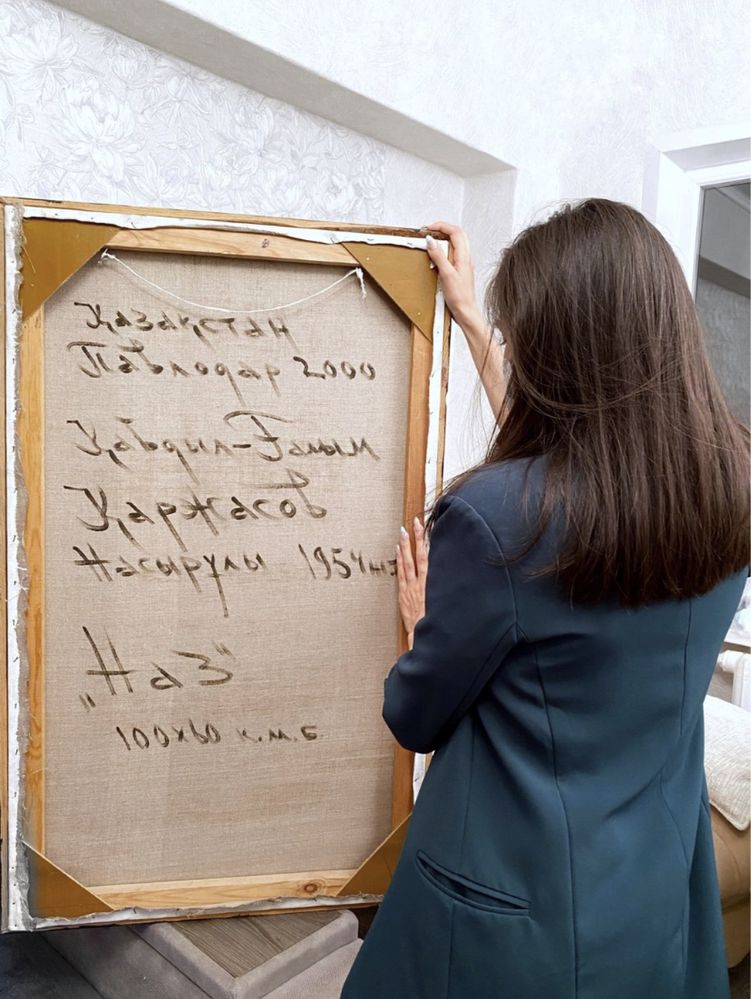 Қазақстан
Павлодар 2000
Қабдыл-Ғалым
Қаржасов
Насырұлы 1954
"Наз"
100х60 к.м.б